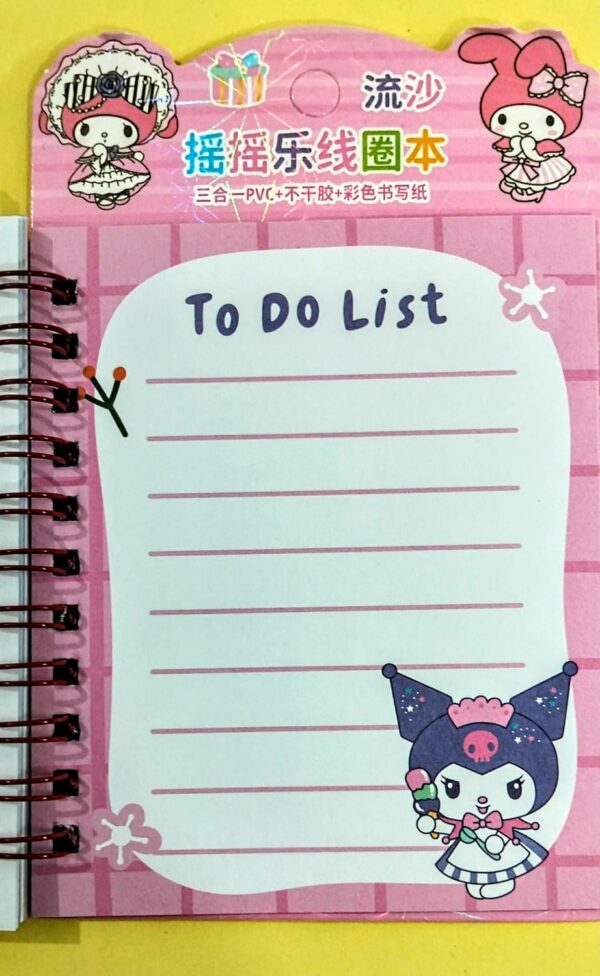 流沙
摇摇乐线圈本
三合一PVC+不干胶+彩色书写纸
To Do List